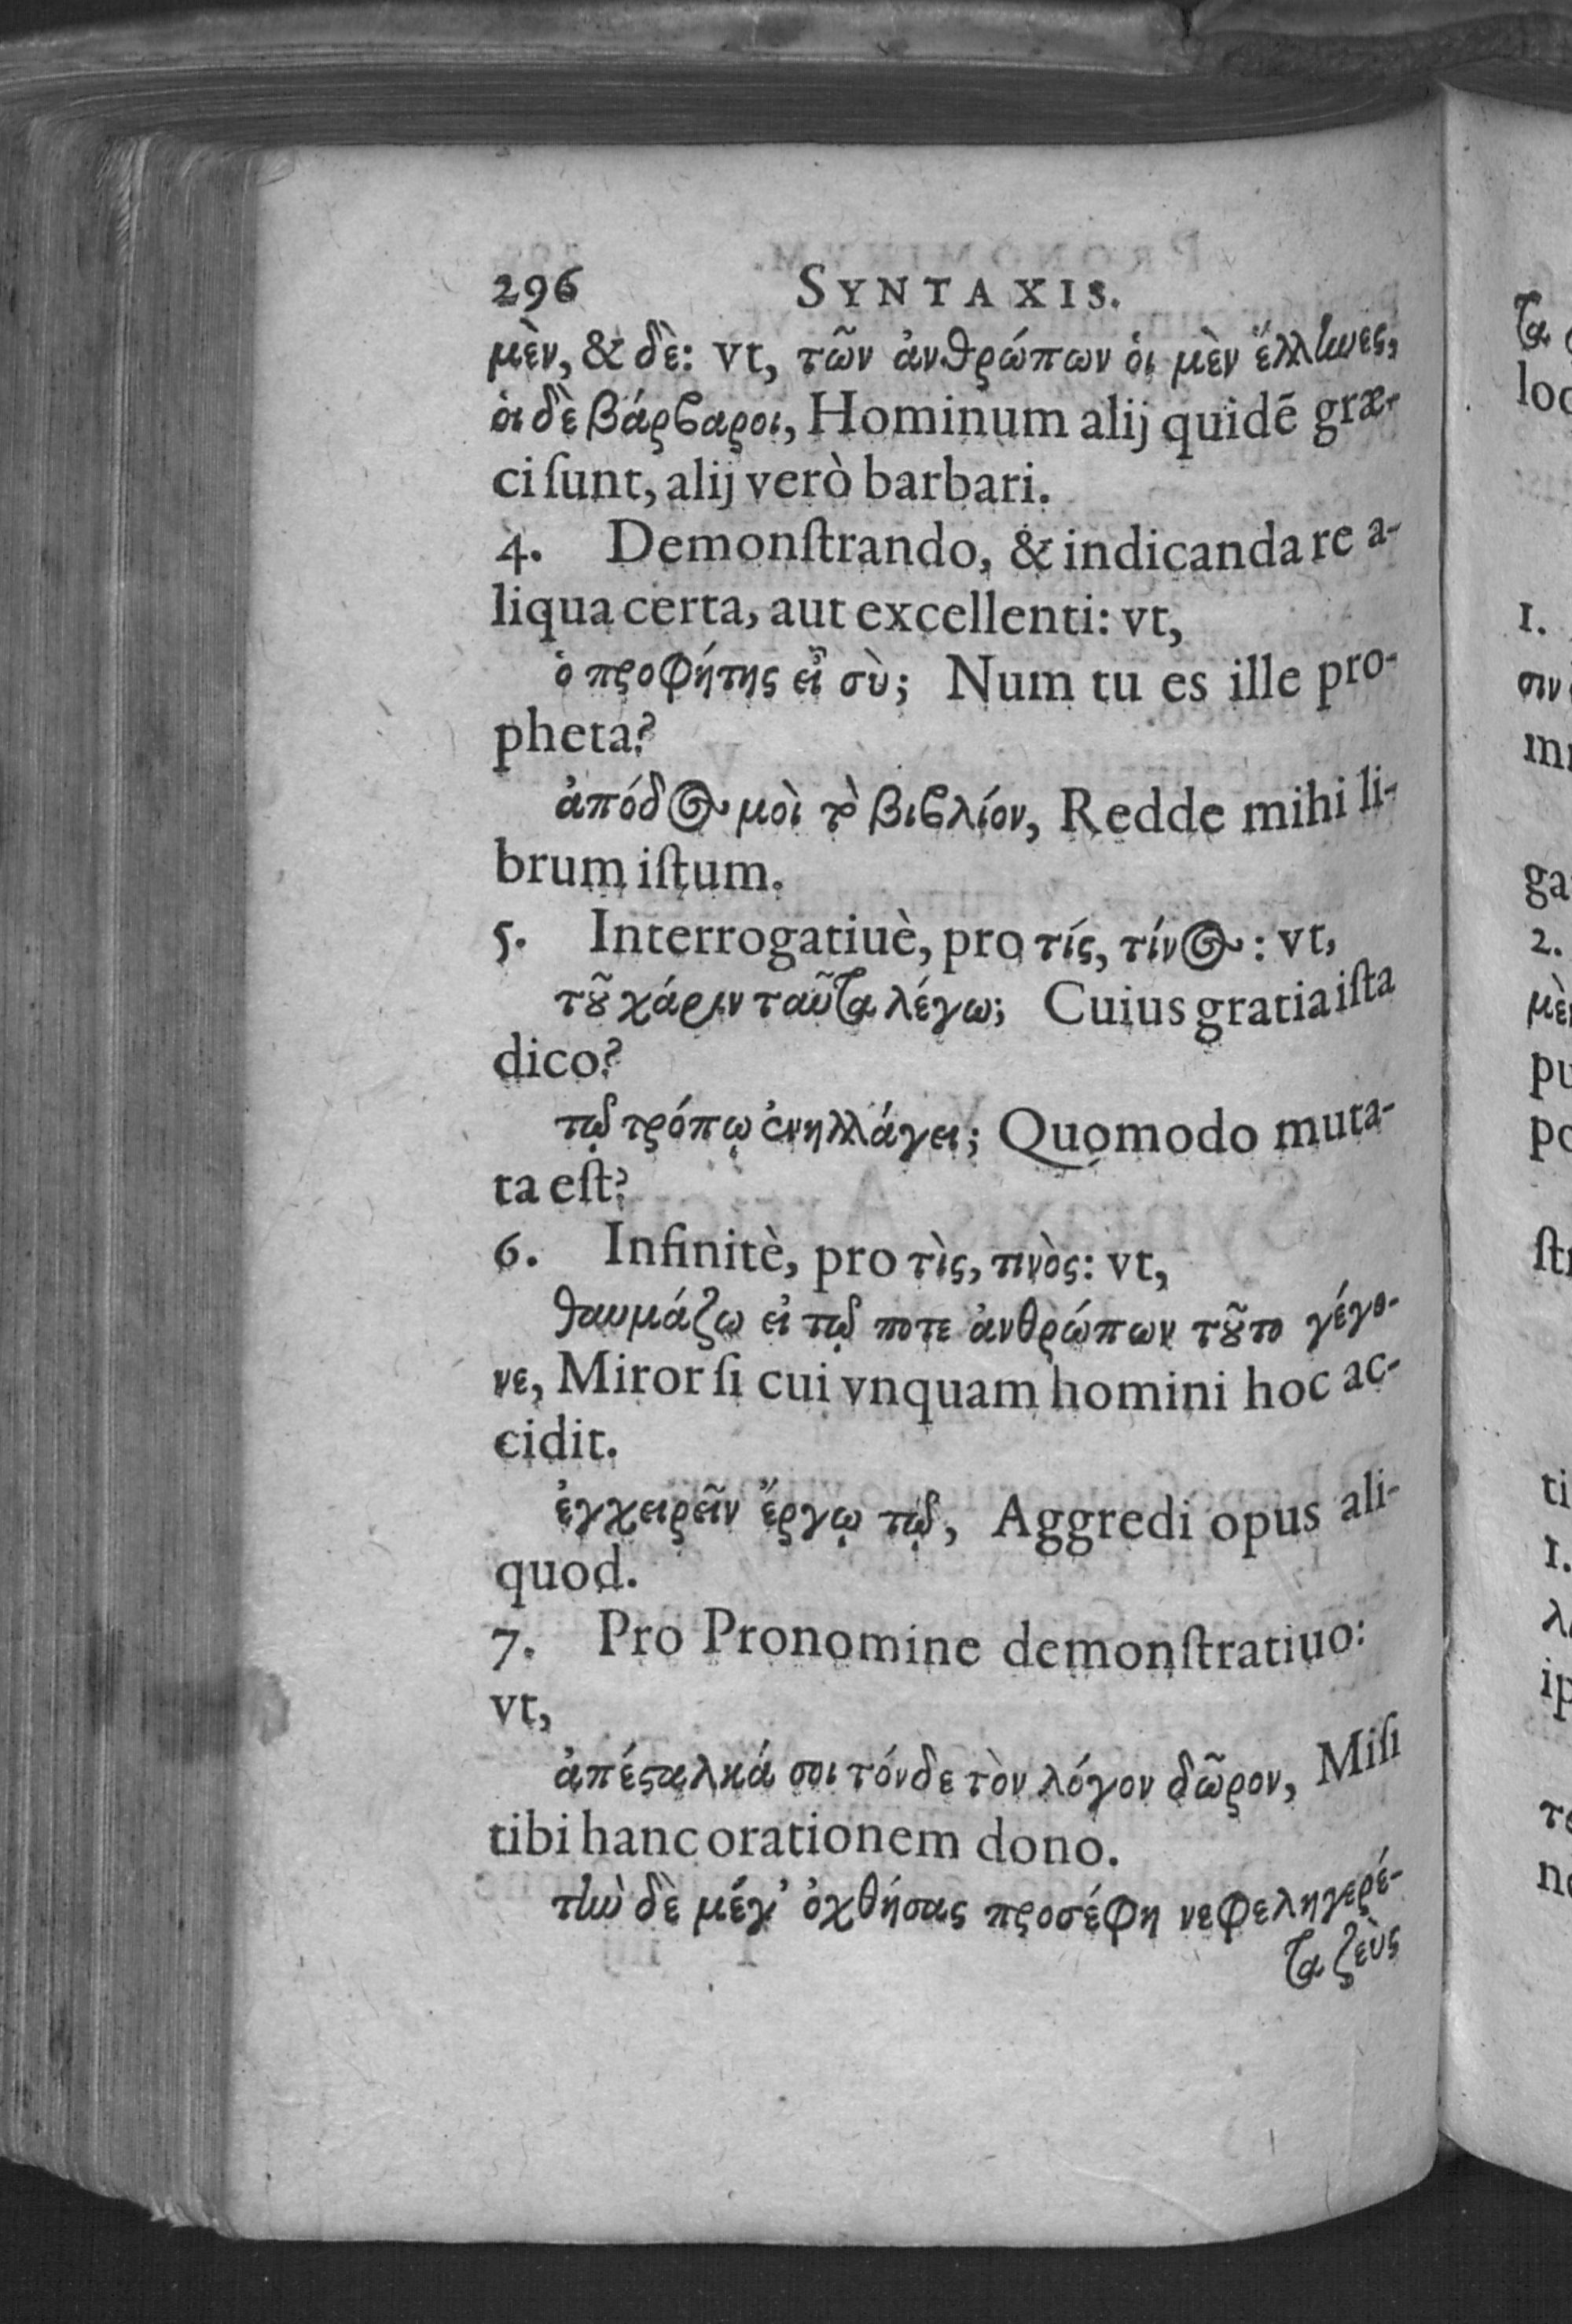 296 SYNTAXIS.
μὲν, & δὲ: vt, τῶν ἀνθρώπων ὁι μὲν ἕλληνες,
ὁι δὲ βάρϐαροι, Hominum alij quidē græ-
ci ſunt, alij verò barbari.
4. Demonſtrando, & indicanda re a-
liqua certa, aut excellenti: vt,
ὁ προφήτης εἶ σὺ; Num tu es ille pro-
pheta?
ἀπόδος μοὶ τὸ βιϐλίον, Redde mihi li-
brum iſtum.
5. Interrogatiuè, pro τίς, τίνος: vt,
τοῦ χάριν ταῦτα λέγω; Cuius gratia iſta
dico?
τῷ τρόπῳ ἐνηλλάγει; Quomodo muta-
ta eſt?
6. Infinitè, pro τὶς, τινὸς: vt,
θαυμάζω εἰ τῷ ποτε ἀνθρώπων τοῦτο γέγο-
νε, Miror ſi cui vnquam homini hoc ac-
cidit.
ἐγχειρεῖν ἔργῳ τῷ, Aggredi opus ali-
quod.
7. Pro Pronomine demonſtratiuo:
vt,
ἀπέσταλκά σοι τόνδε τὸν λόγον δῶρον, Miſi
tibi hanc orationem dono.
τὴν δὲ μέγ' ὀχθήσας προσέφη νεφεληγερέ-
τα ζεὺς